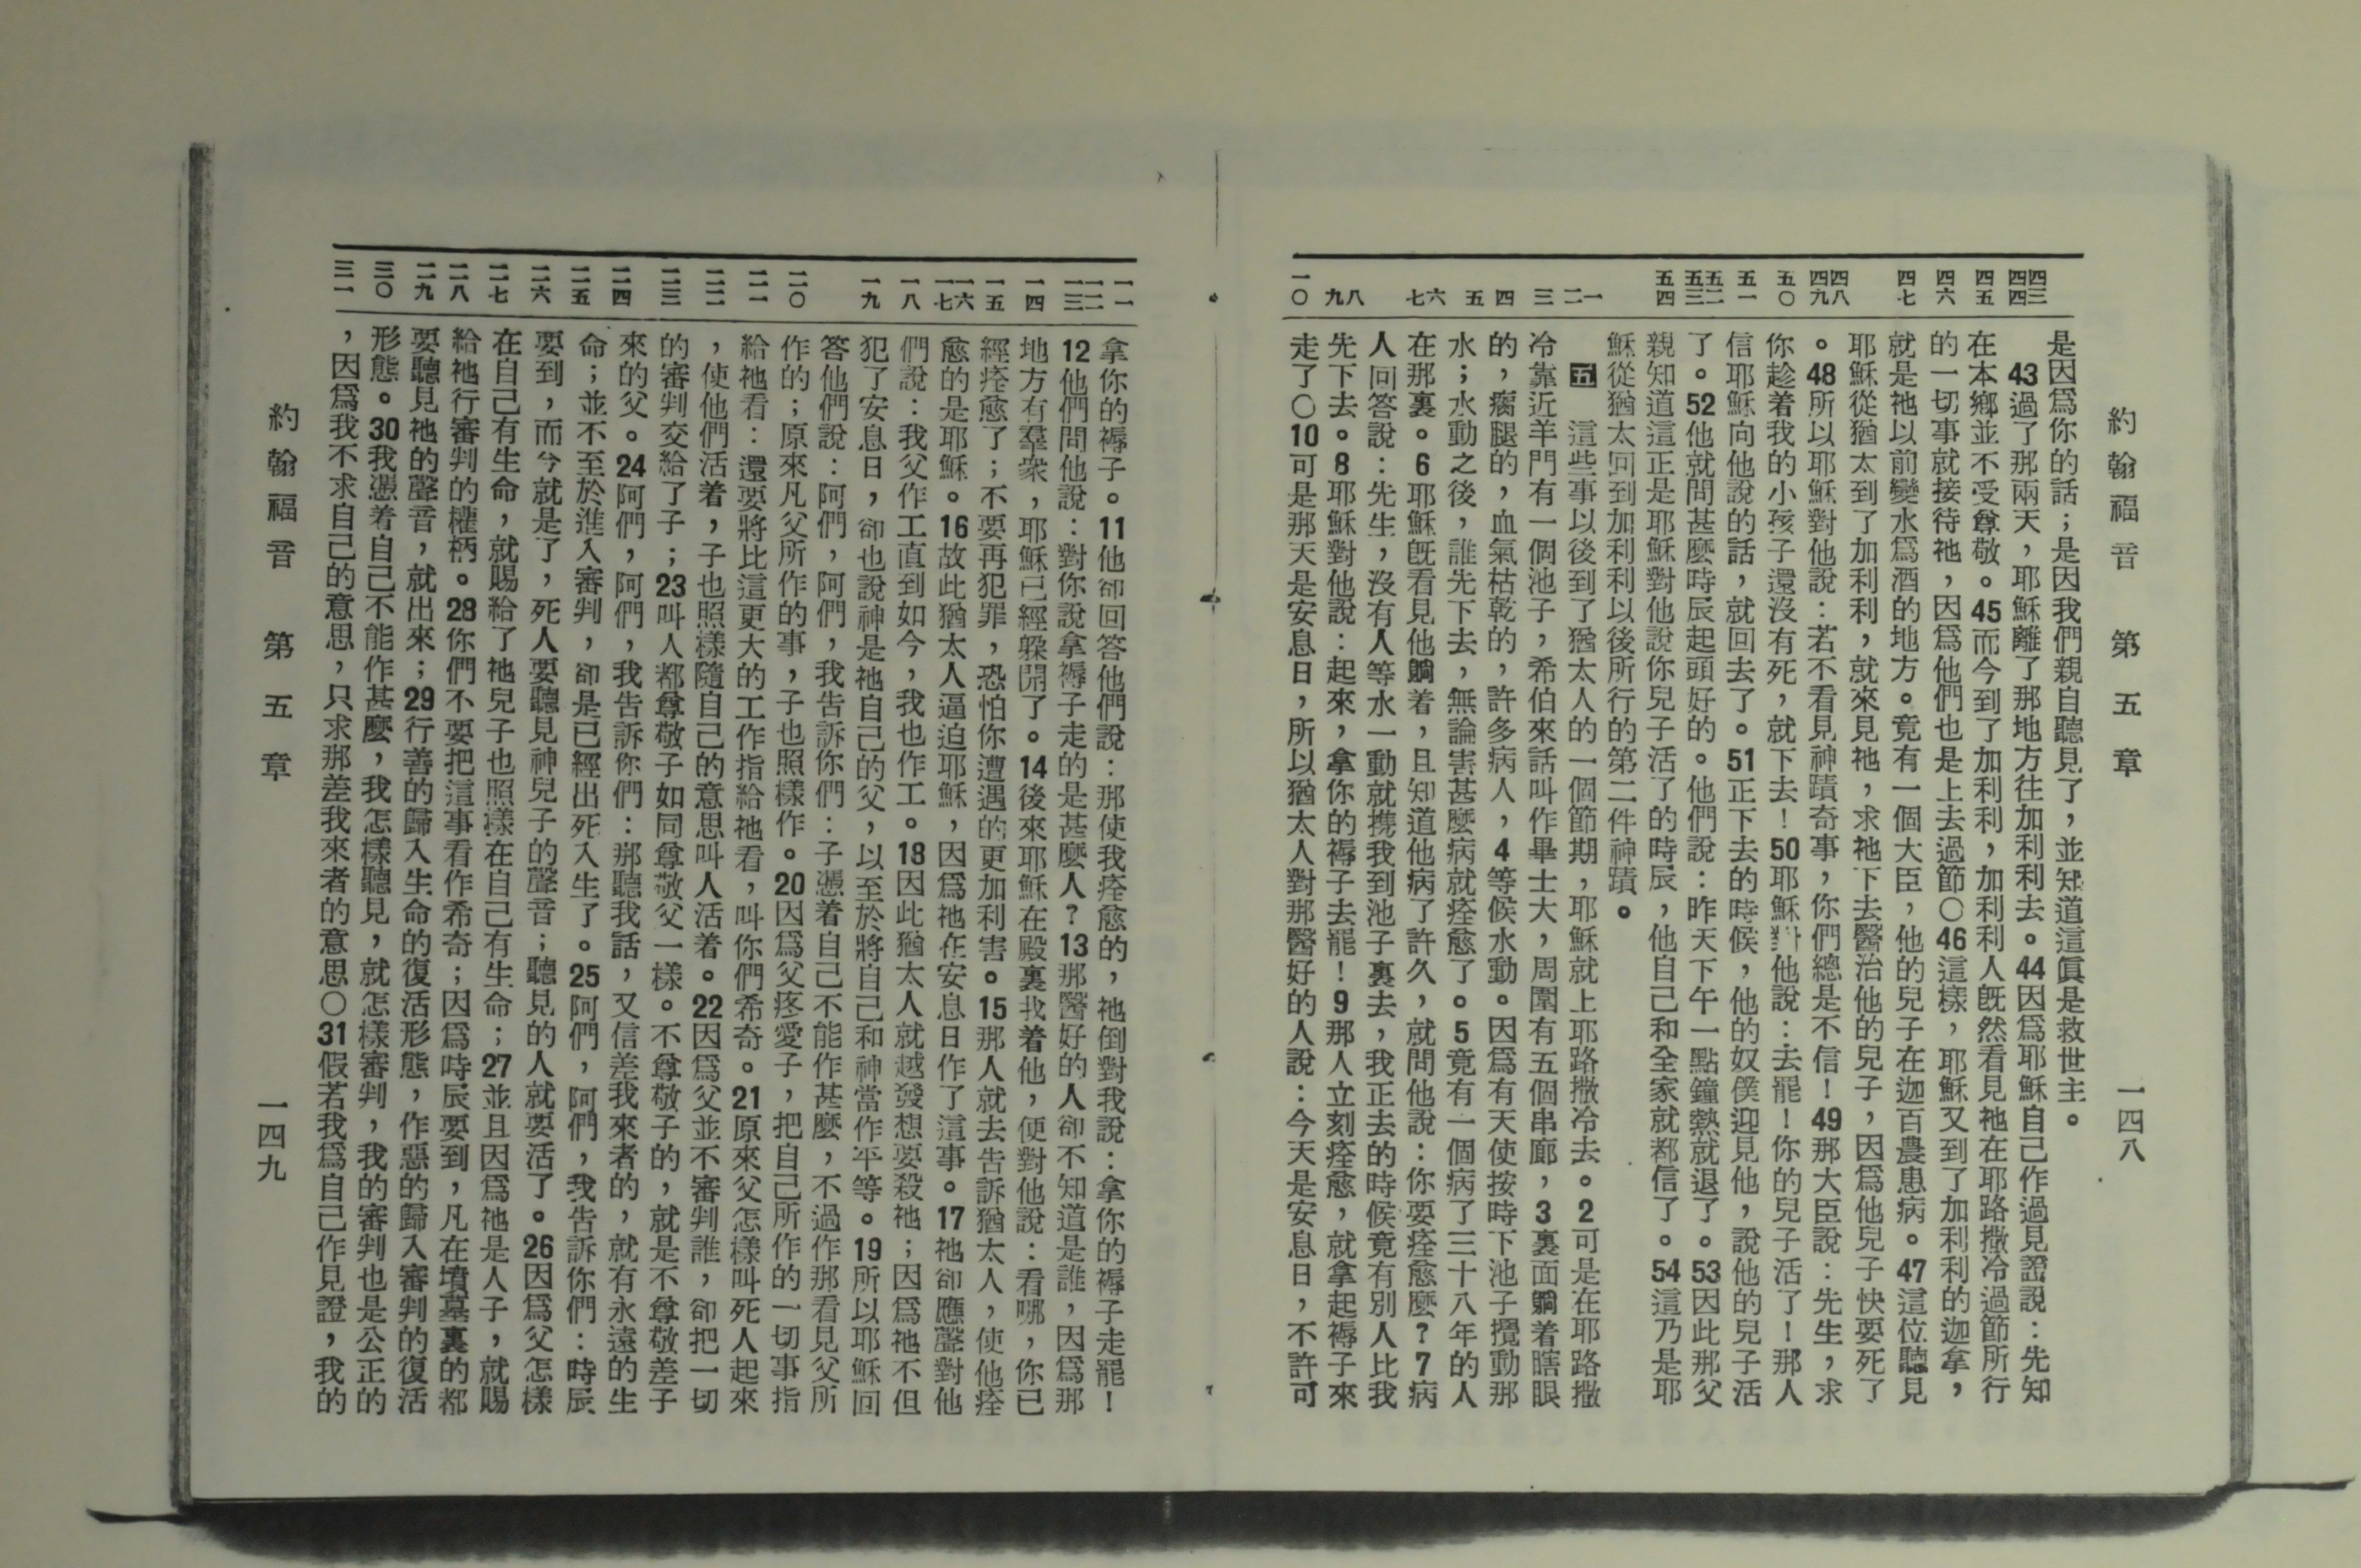 約翰福音 第五章 一四八
四三 四四 四五 四六 四七 四八 四九 五〇 五一 五二 五三 五四 一 二 三 四 五 六 七 八 九 一〇
是因爲你的話；是因我們親自聽見了，並知道這眞是救世主。
43過了那兩天，耶穌離了那地方往加利利去。44因爲耶穌自己作過見證說：先知
在本鄉並不受尊敬。45而今到了加利利，加利利人既然看見祂在耶路撒冷過節所行
的一切事就接待祂，因爲他們也是上去過節〇46這樣，耶穌又到了加利利的迦拿，
就是祂以前變水爲酒的地方。竟有一個大臣，他的兒子在迦百農患病。47這位聽見
耶穌從猶太到了加利利，就來見祂，求祂下去醫治他的兒子，因爲他兒子快要死了
。48所以耶穌對他說：若不看見神蹟奇事，你們總是不信！49那大臣說：先生，求
你趁着我的小孩子還沒有死，就下去！50耶穌對他說：去罷！你的兒子活了！那人
信耶穌向他說的話，就回去了。51正下去的時候，他的奴僕迎見他，說他的兒子活
了。52他就問甚麼時辰起頭好的。他們說：昨天下午一點鐘熱就退了。53因此那父
親知道這正是耶穌對他說你兒子活了的時辰，他自己和全家就都信了。54這乃是耶
穌從猶太回到加利利以後所行的第二件神蹟。
五 這些事以後到了猶太人的一個節期，耶穌就上耶路撒冷去。2可是在耶路撒
冷靠近羊門有一個池子，希伯來話叫作畢士大，周圍有五個串廊，3裏面躺着瞎眼
的，瘸腿的，血氣枯乾的，許多病人，4等候水動。因爲有天使按時下池子攪動那
水；水動之後，誰先下去，無論害甚麼病就痊愈了。5竟有一個病了三十八年的人
在那裏。6耶穌旣看見他躺着，且知道他病了許久，就問他說：你要痊愈麼？7病
人回答說：先生，沒有人等水一動就携我到池子裏去，我正去的時候竟有別人比我
先下去。8耶穌對他說：起來，拿你的褥子去罷！9那人立刻痊愈，就拿起褥子來
走了〇10可是那天是安息日，所以猶太人對那醫好的人說：今天是安息日，不許可
一一 一二 一三 一四 一五 一六 一七 一八 一九 二〇 二一 二二 二三 二四 二五 二六 二七 二八 二九 三〇 三一
拿你的褥子。11他卻回答他們說：那使我痊愈的，祂倒對我說：拿你的褥子走罷！
12他們問他說：對你說拿褥子走的是甚麼人？13那醫好的人卻不知道是誰，因爲那
地方有羣衆，耶穌已經躱開了。14後來耶穌在殿裏找着他，便對他說：看哪，你已
經痊愈了；不要再犯罪，恐怕你遭遇的更加利害。15那人就去告訴猶太人，使他痊
愈的是耶穌。16故此猶太人逼迫耶穌，因爲祂在安息日作了這事。17祂卻應聲對他
們說：我父作工直到如今，我也作工。18因此猶太人就越發想要殺祂；因爲祂不但
犯了安息日，卻也說神是祂自己的父，以至於將自己和神當作平等。19所以耶穌回
答他們說：阿們，阿們，我告訴你們：子憑着自己不能作甚麼，不過作那看見父所
作的；原來凡父所作的事，子也照樣作。20因爲父疼愛子，把自己所作的一切事指
給祂看：還要將比這更大的工作指給祂看，叫你們希奇。21原來父怎樣叫死人起來
，使他們活着，子也照樣隨自己的意思叫人活着。22因爲父並不審判誰，卻把一切
的審判交給了子；23叫人都尊敬子如同尊敬父一樣。不尊敬子的，就是不尊敬差子
來的父。24阿們，阿們，我告訴你們：那聽我話，又信差我來者的，就有永遠的生
命；並不至於進入審判，卻是已經出死入生了。25阿們，阿們，我告訴你們：時辰
要到，而今就是了，死人要聽見神兒子的聲音；聽見的人就要活了。26因爲父怎樣
在自己有生命，就賜給了祂兒子也照樣在自己有生命；27並且因爲祂是人子，就賜
給祂行審判的權柄。28你們不要把這事看作希奇；因爲時辰要到，凡在墳墓裏的都
要聽見祂的聲音，就出來；29行善的歸入生命的復活形態，作惡的歸入審判的復活
形態。30我憑着自己不能作甚麼，我怎樣聽見，就怎樣審判，我的審判也是公正的
，因爲我不求自己的意思，只求那差我來者的意思〇31假若我爲自己作見證，我的
約翰福音 第五章 一四九